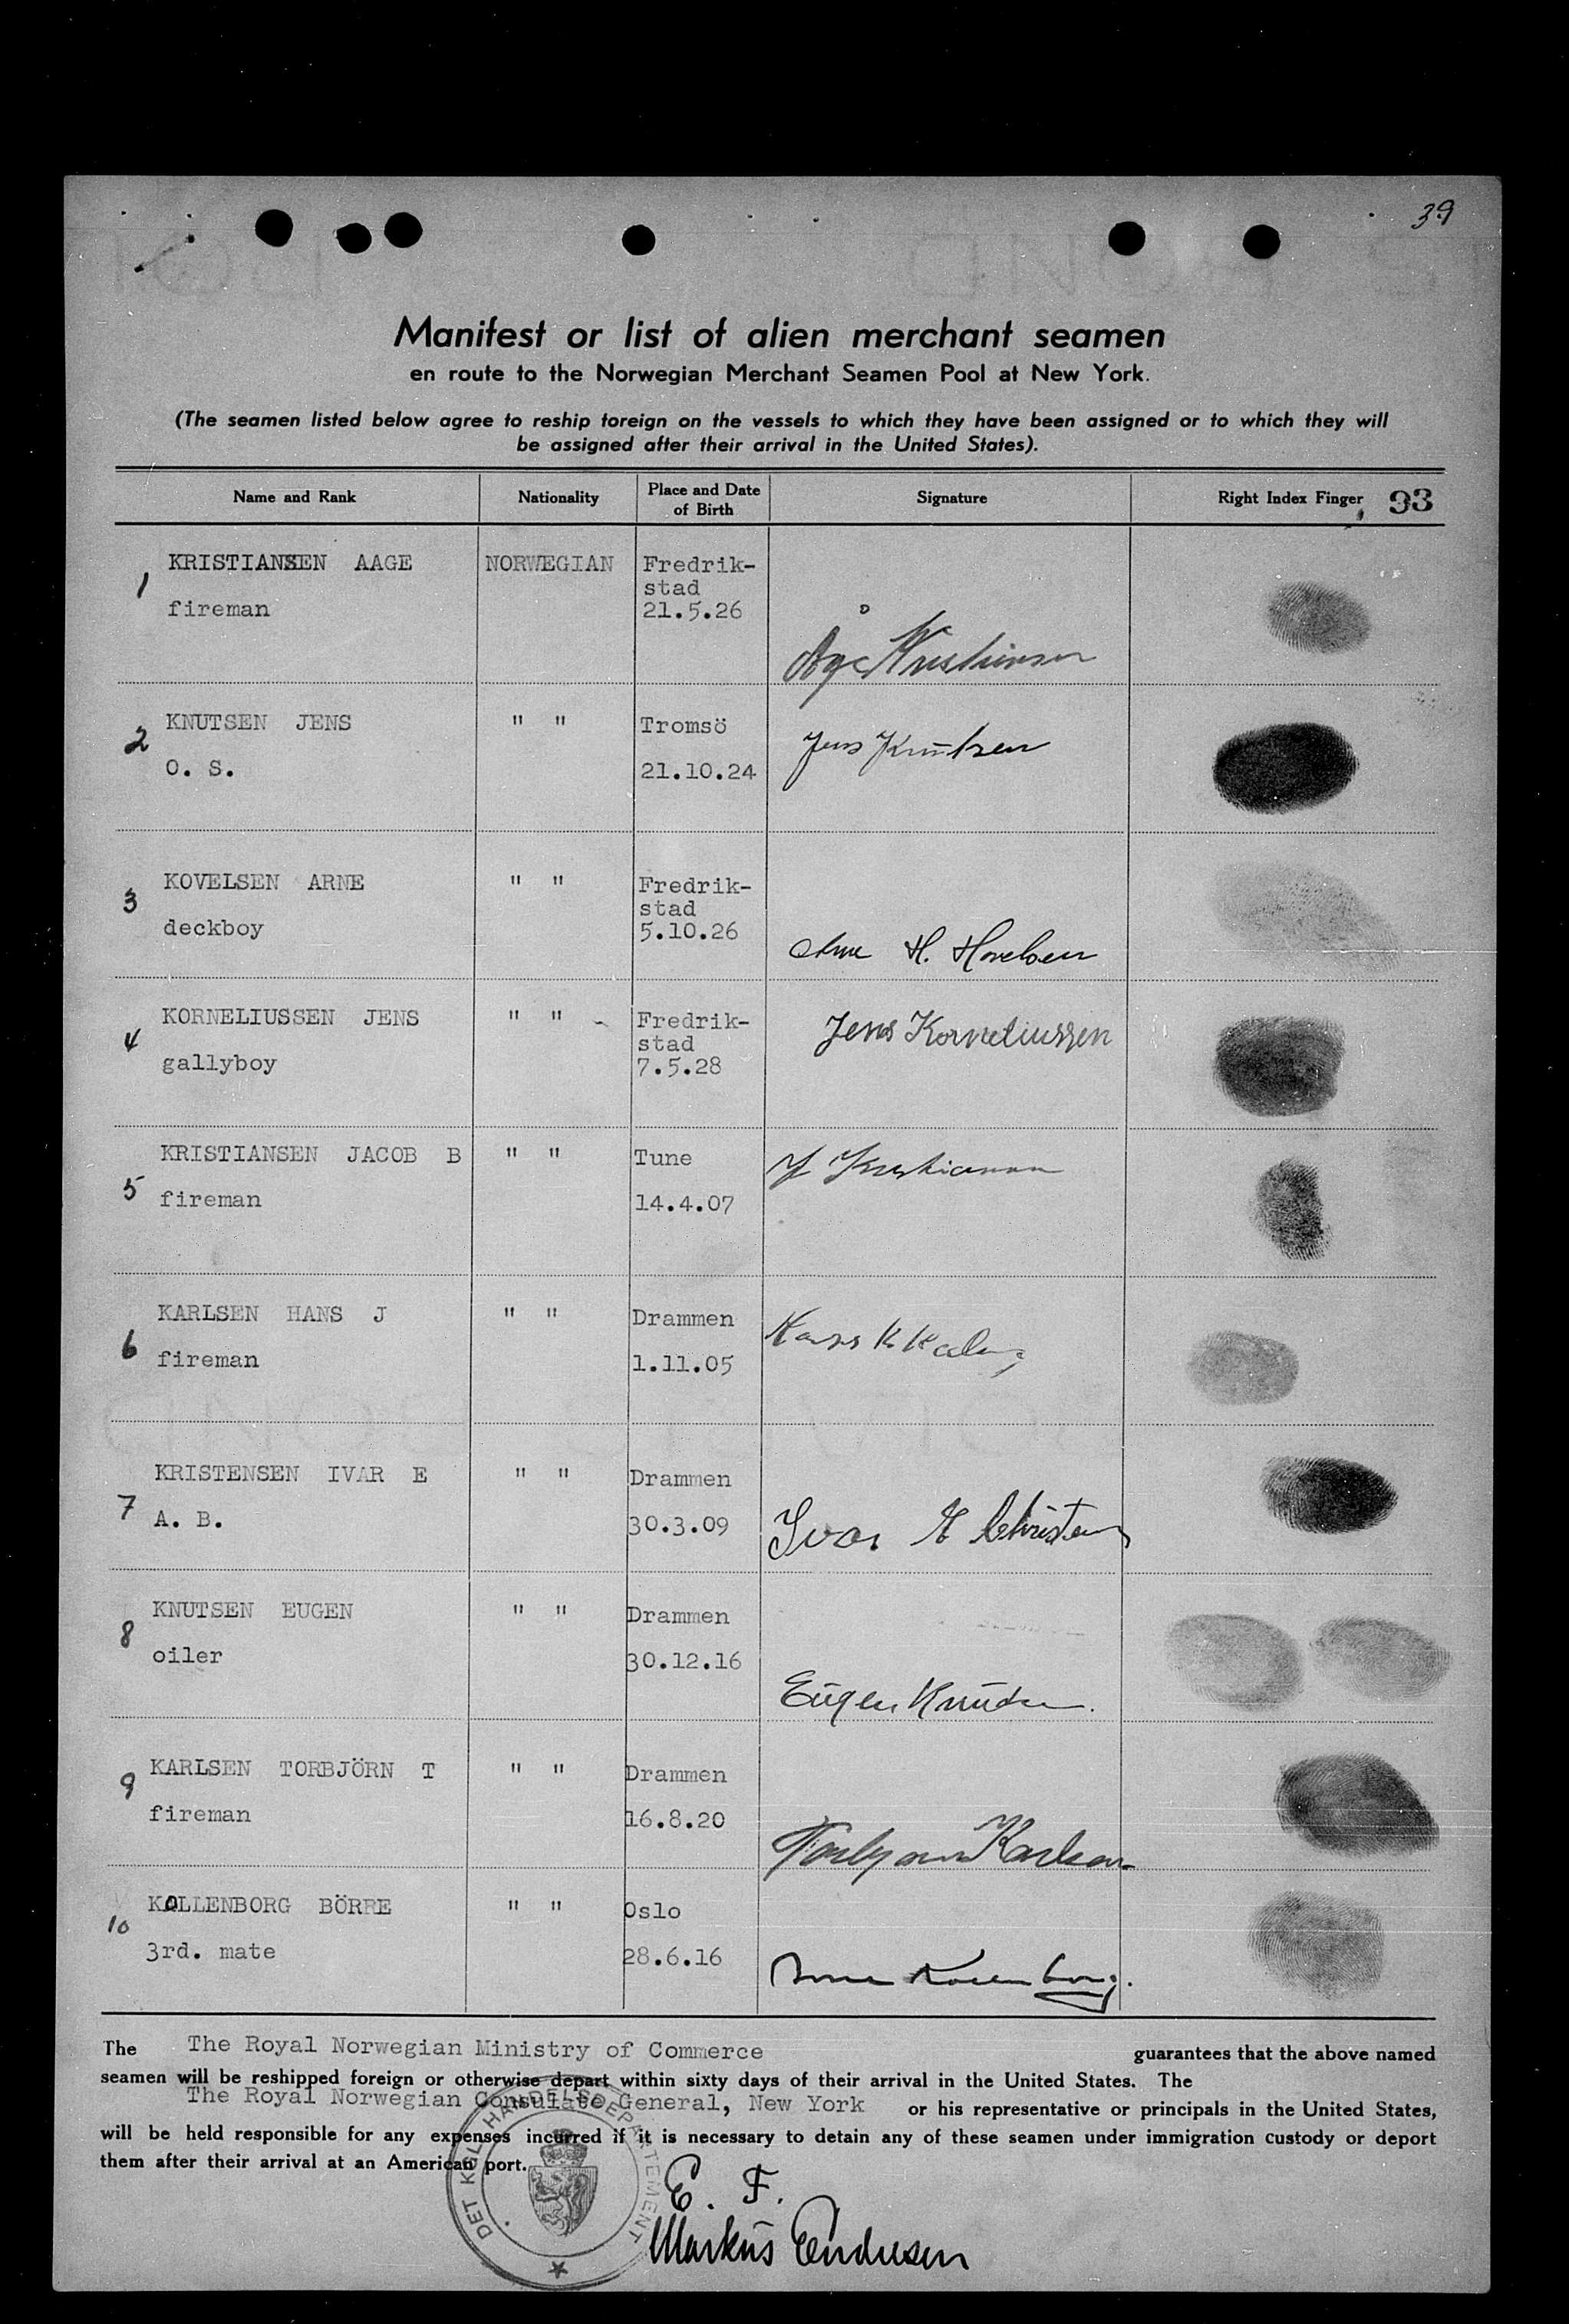 39
Manifest or list of alien merchant seamen
en route to the Norwegian Merchant Seamen Pool at New York.
(The seamen listed below agree to reship foreign on the vessels to which they have been assigned or to which they will
be assigned after their arrival in the United States).
Name and Rank Nationality Place and Date of Birth Signature Right Index Finger 93
1 KRISTIANSEN AAGE NORWEGIAN Fredrik-
stad
fireman 21.5.26
Åge Kristiansen
2 KNUTSEN JENS " " Tromsö Jens Knutsen
O. S. 21.10.24
3 KOVELSEN ARNE " " Fredrik-
stad
deckboy 5.10.26
Arne H. Hovelsen
4 KORNELIUSSEN JENS " " Fredrik- Jens Korneliussen
stad
gallyboy 7.5.28
5 KRISTIANSEN JACOB B " " Tune J Kristiansen
fireman 14.4.07
6 KARLSEN HANS J " " Drammen Hans
fireman 1.11.05
7 KRISTENSEN IVAR E " " Drammen
A. B. 30.3.09 Ivar E Christensen
8 KNUTSEN EUGEN " " Drammen
oiler 30.12.16
Eugen Knudsen.
9 KARLSEN TORBJÖRN T " " Drammen
fireman 16.8.20
Torbjørn Karlsen
10 KOLLENBORG BÖRRE " " Oslo
3rd. mate 28.6.16
Børre Kollenborg.
The The Royal Norwegian Ministry of Commerce guarantees that the above named
seamen will be reshipped foreign or otherwise depart within sixty days of their arrival in the United States. The
The Royal Norwegian Consulate General, New York or his representative or principals in the United States,
will be held responsible for any expenses incurred if it is necessary to detain any of these seamen under immigration custody or deport
them after their arrival at an American port.
DET KGL. HANDELSDEPARTEMENT
E. F.
Markus Endresen